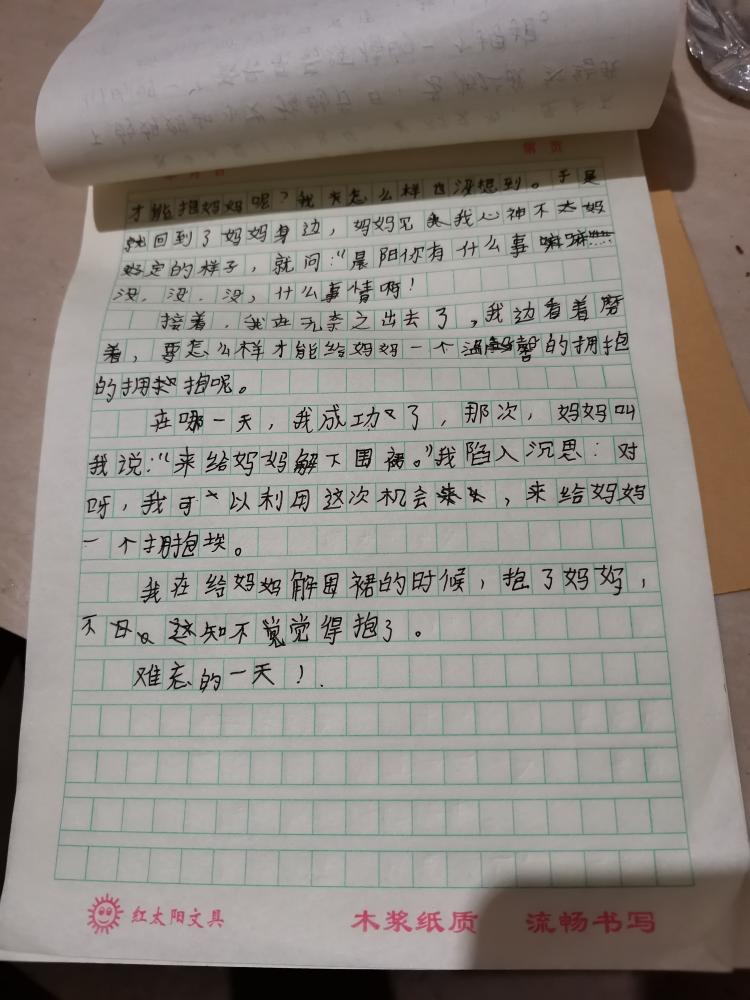 第 页
才能抱妈妈呢？我怎么样也没想到。于是
就回到了妈妈身边，妈妈见我心神不太
好定的样子，就问：“晨阳你有什么事
没，没，没，什么事情啊！
接着，我在无奈之出去了，我边看着磨
着，要怎么样才能给妈妈一个温馨的拥抱
的拥抱呢。
在哪一天，我成功了，那次，妈妈叫
我说：“来给妈妈解下围裙。”我陷入沉思：对
呀，我可以利用这次机会，来给妈妈
一个拥抱埃。
我在给妈妈解围裙的时候，抱了妈妈，
不知不觉得抱了。
难忘的一天！.
红太阳文具
木浆纸质 流畅书写